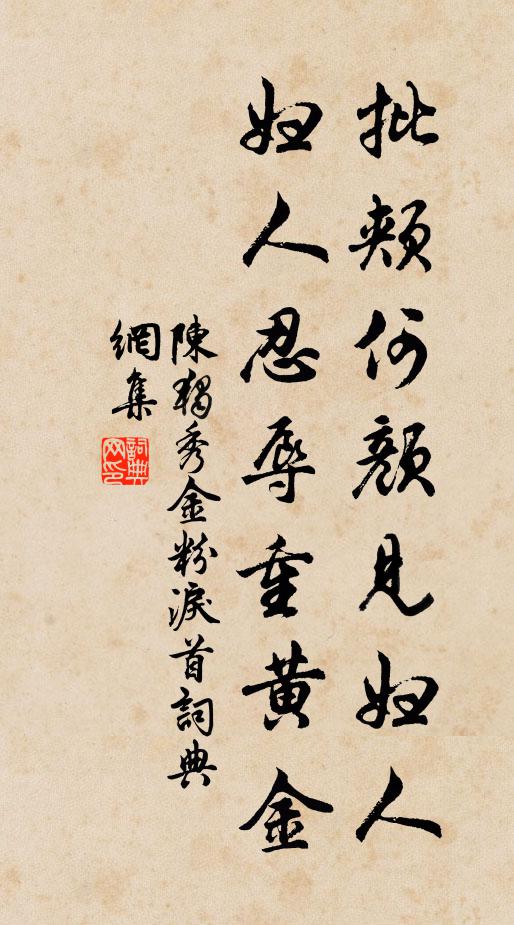 批頰何顏見妇人
妇人忍辱重黄金
陳獨秀金粉淚首詞典
網集
詞典
网印